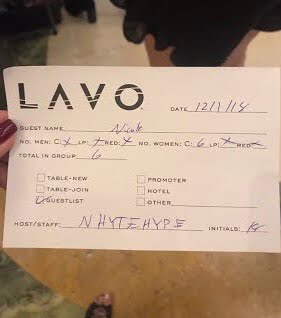 LAVO
DATE 12/1/18
GUEST NAME Nicole
NO. MEN: C: x LP: x RED: x NO. WOMEN: C: 6 LP: x RED: x
TOTAL IN GROUP 6
TABLE-NEW PROMOTER
TABLE-JOIN HOTEL
GUESTLIST OTHER
HOST/STAFF: NHYTEHYPE INITIALS: